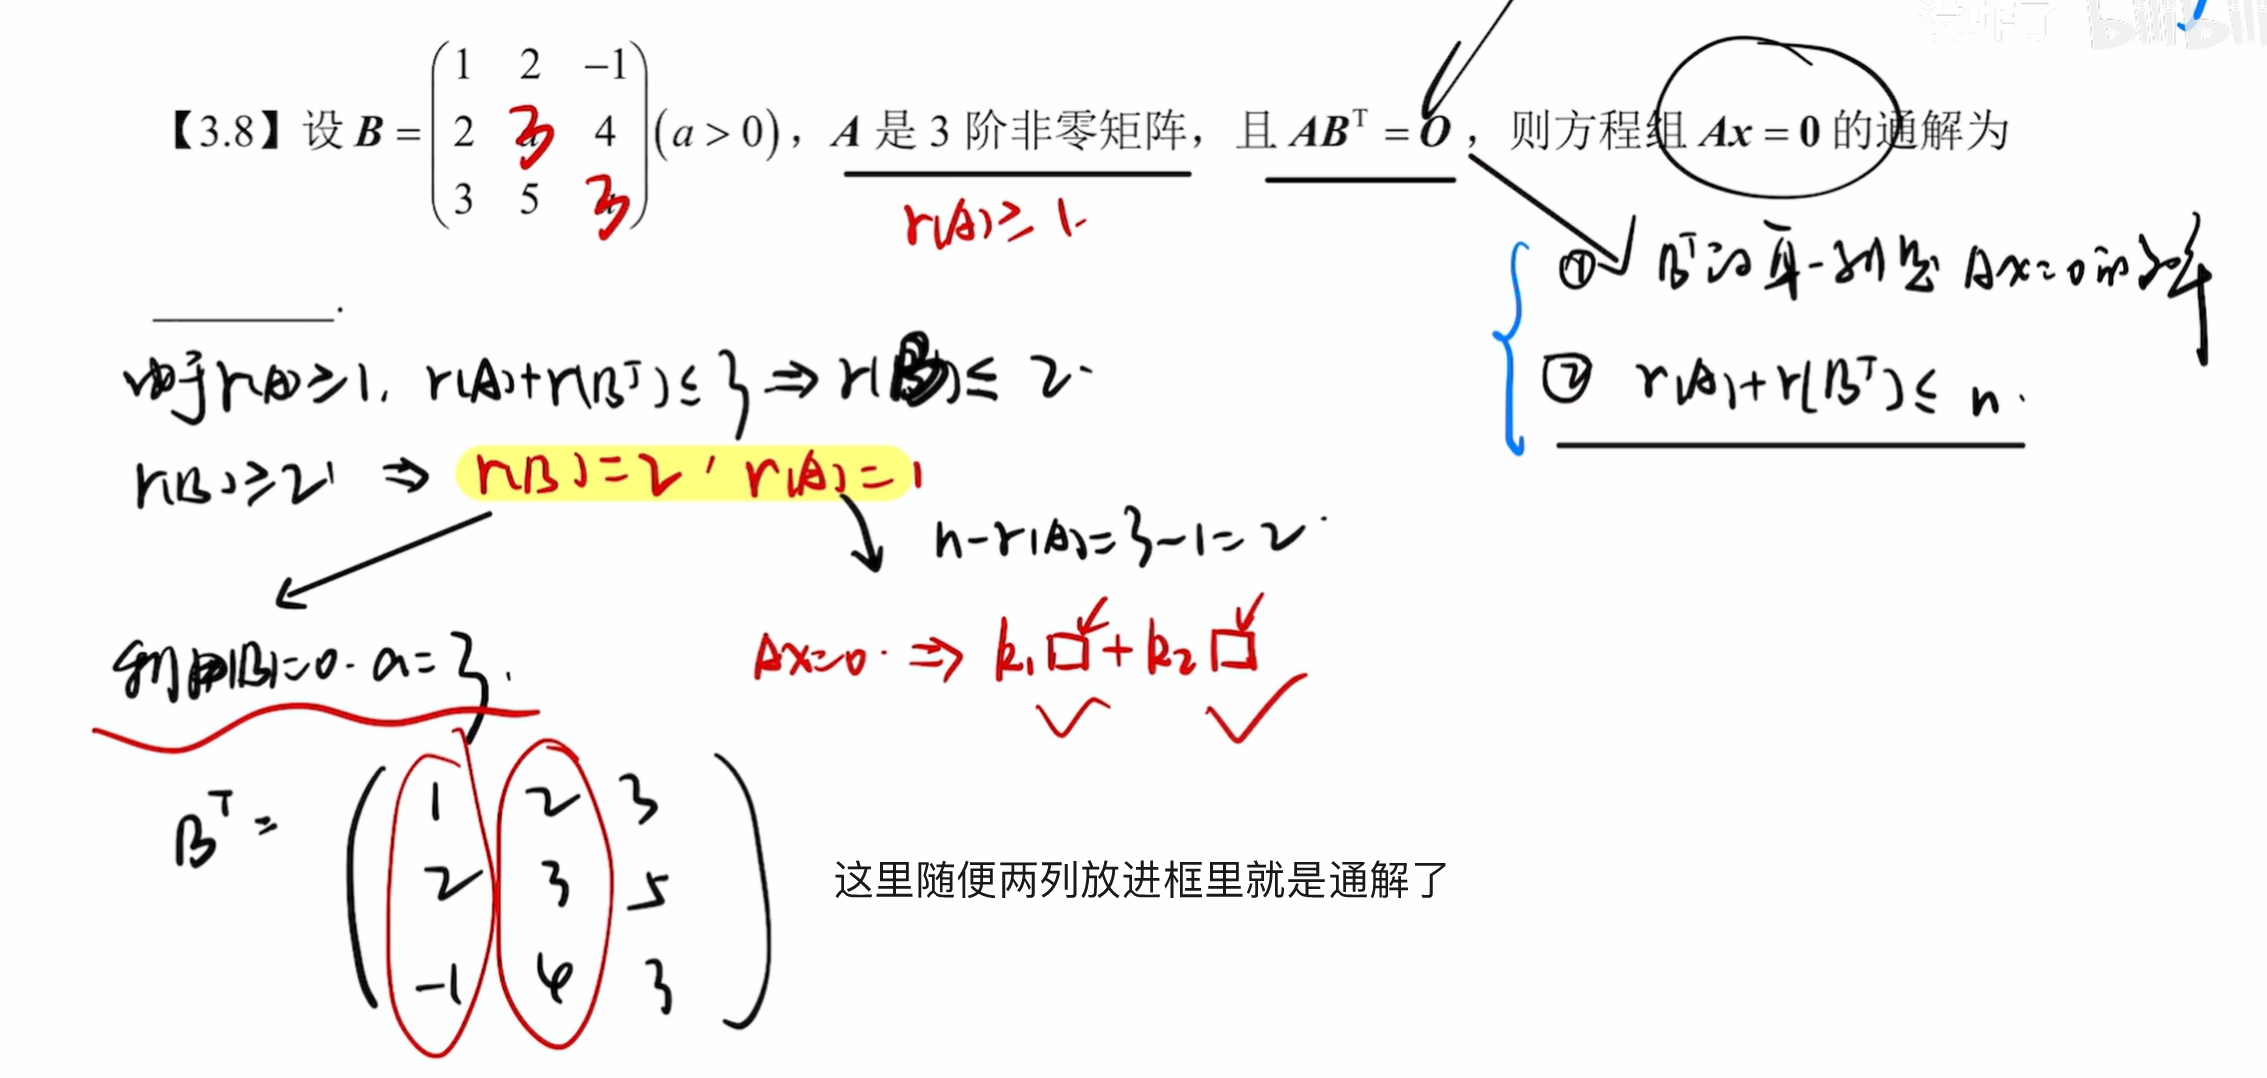 【3.8】设 B = (1 2 −1; 2 3 4; 3 5 3) (a > 0)，A 是 3 阶非零矩阵，且 ABᵀ = O，则方程组 Ax = 0 的通解为
______.
r(A)≥1.
① Bᵀ的每一列是 Ax=0的解
② r(A)+r(Bᵀ)≤n.
由于r(A)≥1, r(A)+r(Bᵀ)≤3 ⇒ r(B)≤2.
r(B)≥2, ⇒ r(B)=2, r(A)=1
n-r(A)=3-1=2.
利用|B|=0. a=3.
Ax=0. ⇒ k₁□+k₂□
Bᵀ= (1 2 3; 2 3 5; -1 4 3)
这里随便两列放进框里就是通解了